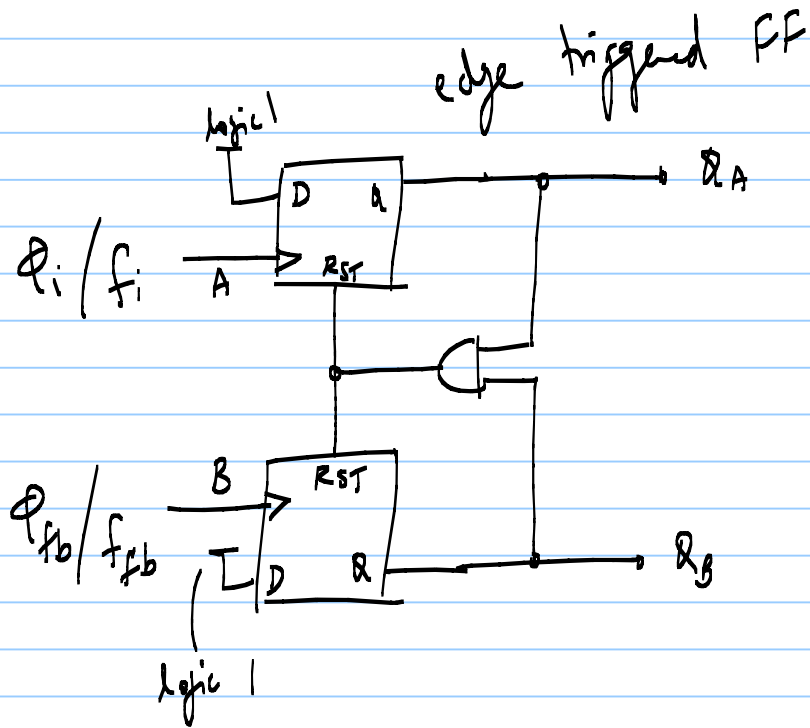 edge triggered FF
logic 1
D Q Q_A
Φ_i / f_i A RST
B RST
Φ_fb / f_fb
D Q Q_B
logic 1